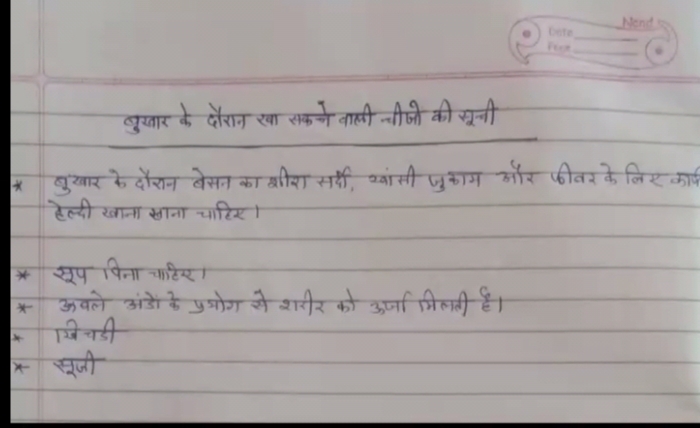 Nend
Date
Page
बुखार के दौरान खा सकने वाली चीजो की सूची
* बुखार के दौरान बेसन का शीरा सर्दी, खांसी जुकाम और फीवर के लिए
हेल्दी खाना खाना चाहिए।
* सूप पिना चाहिए।
* ऊबले अंडों के प्रयोग से शरीर को ऊर्जा मिलती है।
* खिचडी
* सूजी